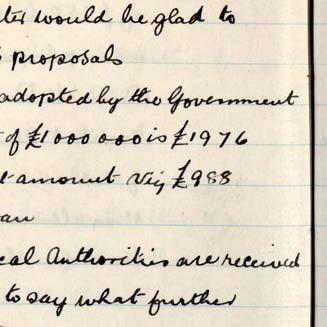 would be glad to
proposals
adopted by the Government
of £1000000 is £1976
amount viz £988
an
cal Authorities are received
to say what further